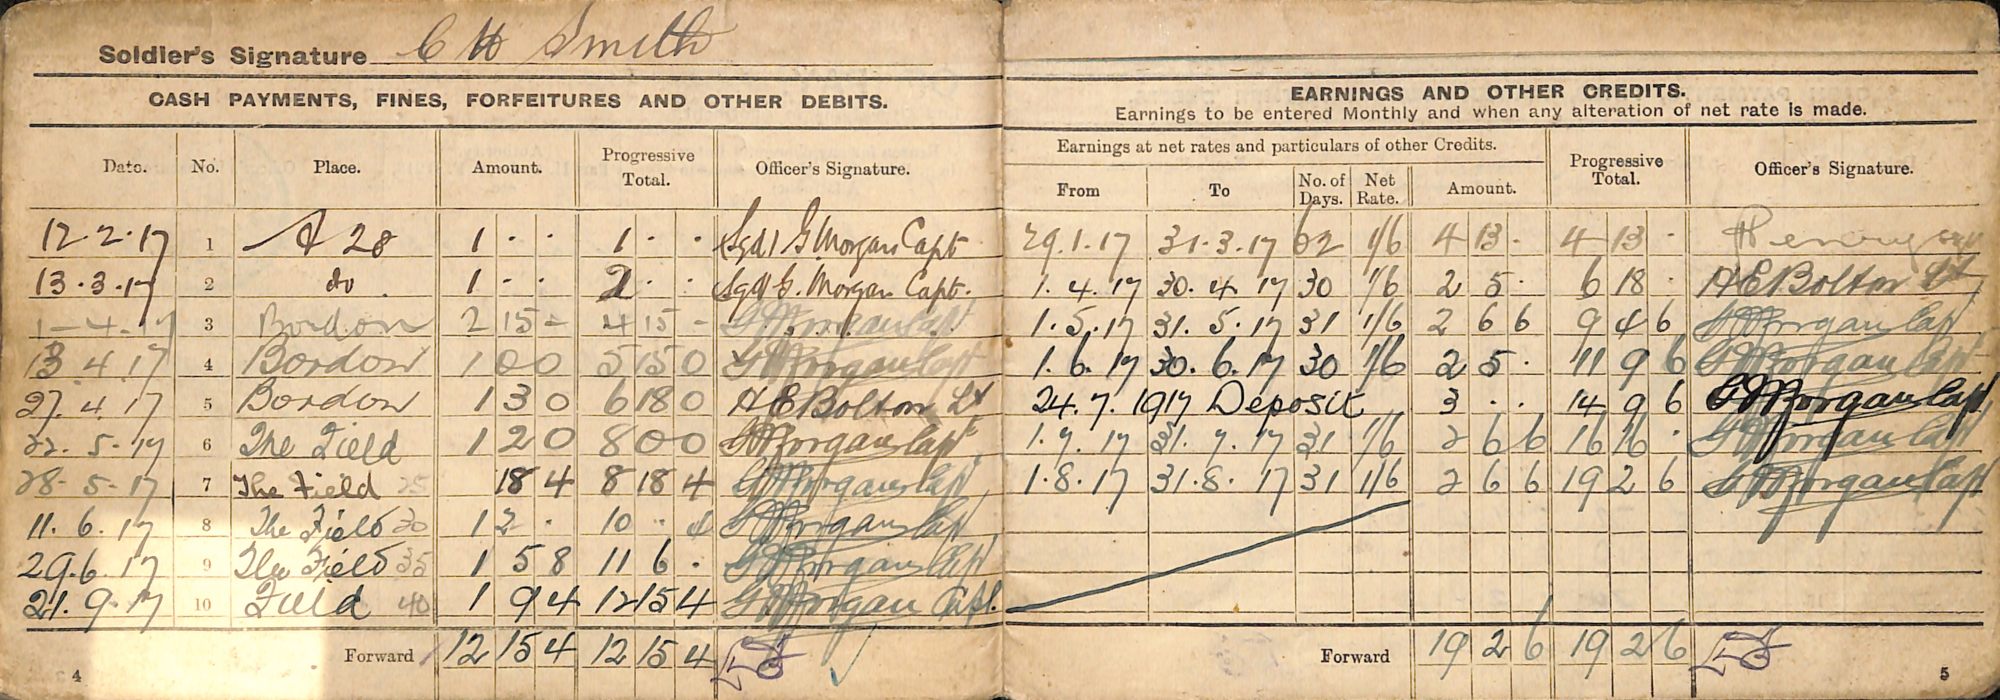 Soldier's Signature C H Smith
CASH PAYMENTS, FINES, FORFEITURES AND OTHER DEBITS.
Date. No. Place. Amount. Progressive Total. Officer's Signature.
12.2.17 1 A 28 1 . . 1 . . Sgd/ G Morgan Capt
13.3.17 2 do 1 . . 2 . . Sgd/ G. Morgan Capt.
1-4-17 3 Bordon 2 15 - 4 15 - G Morgan Capt
13 4 17 4 Bordon 1 0 0 5 15 0 G Morgan Capt
27.4.17 5 Bordon 1 3 0 6 18 0 H E Bolton Lt
22.5.17 6 The Field 1 2 0 8 0 0 G Morgan Capt
28-5-17 7 The Field 25 18 4 8 18 4 G Morgan Capt
11.6.17 8 The Field 30 1 2 . 10 . 4 G Morgan Capt
29.6.17 9 The Field 35 1 5 8 11 6 . G Morgan Capt
21.9.17 10 Field 40 1 9 4 12 15 4 G Morgan Capt.
Forward 12 15 4 12 15 4
4
EARNINGS AND OTHER CREDITS.
Earnings to be entered Monthly and when any alteration of net rate is made.
Earnings at net rates and particulars of other Credits. Progressive Total. Officer's Signature.
From To No. of Days. Net Rate. Amount.
29.1.17 31.3.17 62 1/6 4 13 . 4 13 .
1.4.17 30.4.17 30 1/6 2 5 . 6 18 . H E Bolton Lt
1.5.17 31.5.17 31 1/6 2 6 6 9 4 6 G Morgan Capt
1.6.17 30.6.17 30 1/6 2 5 . 11 9 6 G Morgan Capt
24.7.1917 Deposit 3 . . 14 9 6 G Morgan Capt
1.7.17 31.7.17 31 1/6 2 6 6 16 16 . G Morgan Capt
1.8.17 31.8.17 31 1/6 2 6 6 19 2 6 G Morgan Capt
Forward 19 2 6 19 2 6
5